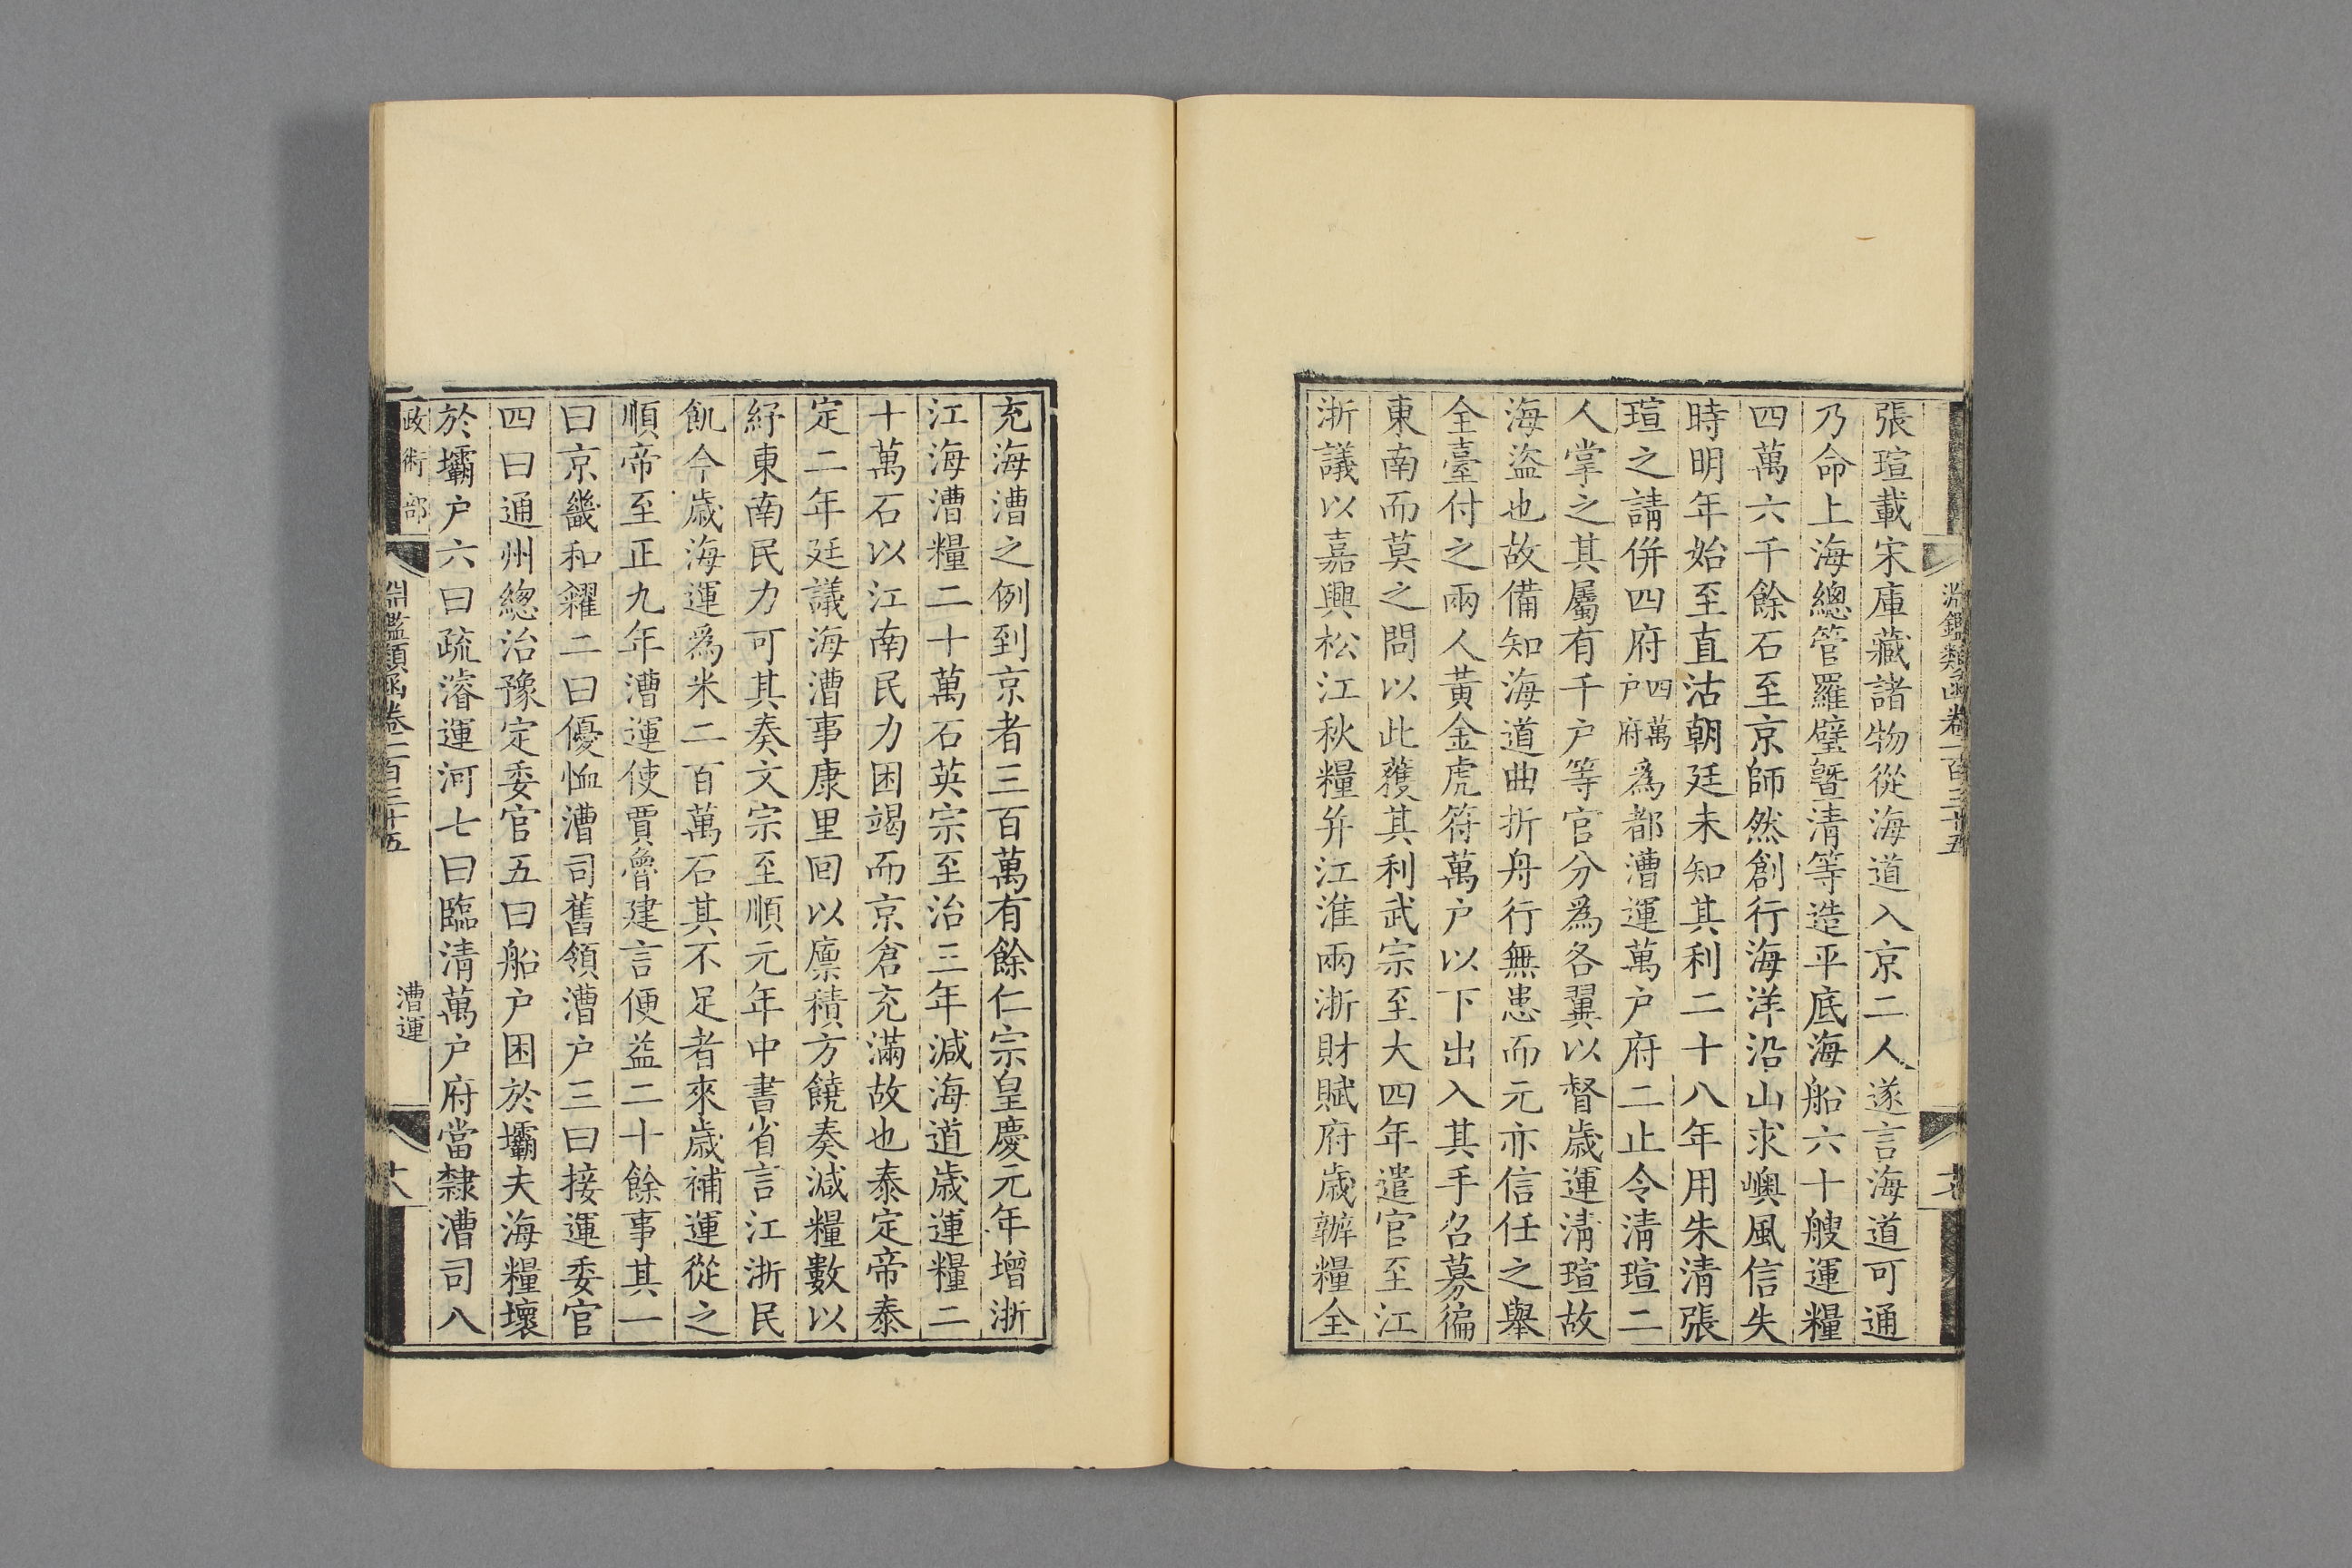 淵鑑類函卷一百三十五
張瑄載宋庫藏諸物從海道入京二人遂言海道可通
乃命上海總管羅璧曁清等造平底海船六十艘運糧
四萬六千餘石至京師然創行海洋沿山求嶼風信失
時明年始至直沽朝廷未知其利二十八年用朱清張
瑄之請併四府四萬戸府爲都漕運萬戸府二止令清瑄二
人掌之其屬有千戸等官分爲各翼以督歳運清瑄故
海盜也故備知海道曲折舟行無患而元亦信任之舉
全臺付之兩人黃金虎符萬戸以下出入其手召募徧
東南而莫之問以此蓰其利武宗至大四年遣官至江
浙議以嘉興松江秋糧并江淮兩浙財賦府歳辦糧全
充海漕之例到京者三百萬有餘仁宗皇慶元年增浙
江海漕糧二十萬石英宗至治三年減海道歳運糧二
十萬石以江南民力困竭而京倉充滿故也泰定帝泰
定二年廷議海漕事康里回以廩積方饒奏減糧數以
紓東南民力可其奏文宗至順元年中書省言江浙民
飢今歳海運爲米二百萬石其不足者來歳補運從之
順帝至正九年漕運使賈魯建言便益二十餘事其一
曰京畿和糴二曰優恤漕司舊領漕戸三曰接運委官
四曰通州總治豫定委官五曰船戸困於壩夫海糧壞
於壩戸六曰疏濬運河七曰臨清萬戸府當隸漕司八
政術部
淵鑑類函卷一百三十五
漕運
十八